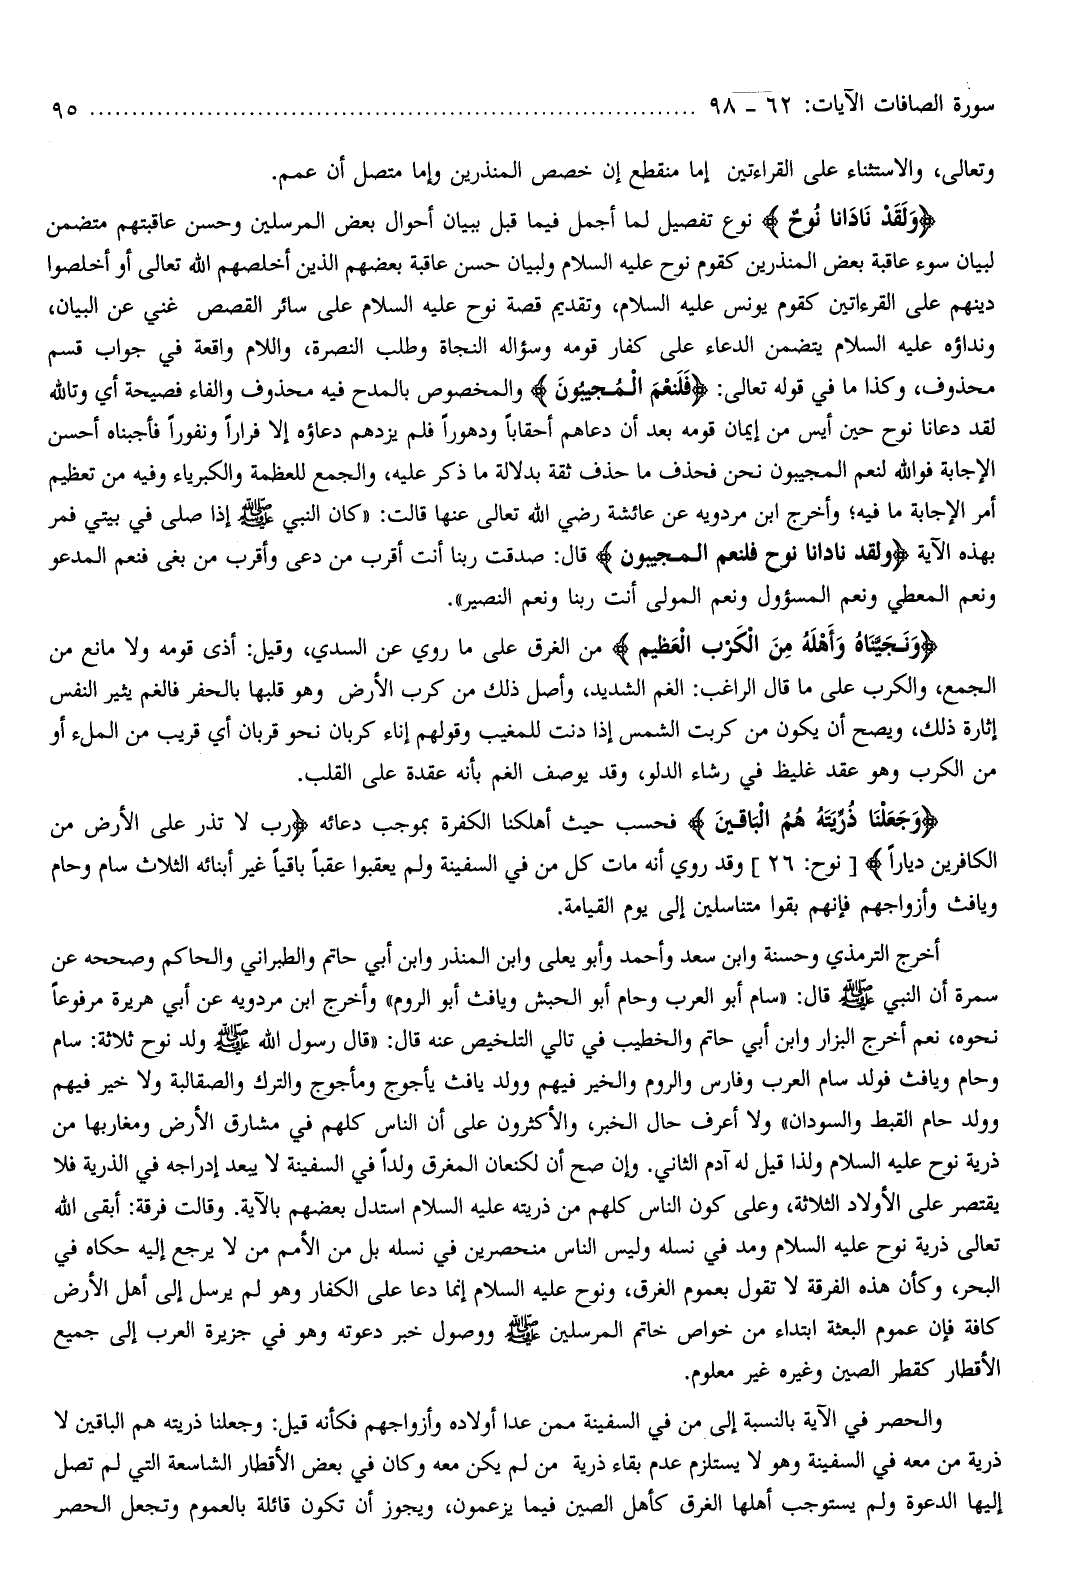 سورة الصافات الآيات: ٦٢ ـ ٩٨ ........................................................................ ٩٥
وتعالى، والاستثناء على القراءتين إما منقطع إن خصص المنذرين وإما متصل أن عمم.
﴿وَلَقَدْ نَادَانا نُوحٌ﴾ نوع تفصيل لما أجمل فيما قبل ببيان أحوال بعض المرسلين وحسن عاقبتهم متضمن
لبيان سوء عاقبة بعض المنذرين كقوم نوح عليه السلام ولبيان حسن عاقبة بعضهم الذين أخلصهم الله تعالى أو أخلصوا
دينهم على القرءاتين كقوم يونس عليه السلام، وتقديم قصة نوح عليه السلام على سائر القصص غني عن البيان،
ونداؤه عليه السلام يتضمن الدعاء على كفار قومه وسؤاله النجاة وطلب النصرة، واللام واقعة في جواب قسم
محذوف، وكذا ما في قوله تعالى: ﴿فَلَنعْمَ الْمُجيبُونَ﴾ والمخصوص بالمدح فيه محذوف والفاء فصيحة أي وتالله
لقد دعانا نوح حين أيس من إيمان قومه بعد أن دعاهم أحقاباً ودهوراً فلم يزدهم دعاؤه إلا فراراً ونفوراً فأجبناه أحسن
الإجابة فوالله لنعم المجيبون نحن فحذف ما حذف ثقة بدلالة ما ذكر عليه، والجمع للعظمة والكبرياء وفيه من تعظيم
أمر الإجابة ما فيه؛ وأخرج ابن مردويه عن عائشة رضي الله تعالى عنها قالت: «كان النبي ﷺ إذا صلى في بيتي فمر
بهذه الآية ﴿ولقد نادانا نوح فلنعم المجيبون﴾ قال: صدقت ربنا أنت أقرب من دعى وأقرب من بغى فنعم المدعو
ونعم المعطي ونعم المسؤول ونعم المولى أنت ربنا ونعم النصير».
﴿وَنَجيَّنَاهُ وَأَهْلَهُ مِنَ الْكَرْب الْعَظيم﴾ من الغرق على ما روي عن السدي، وقيل: أذى قومه ولا مانع من
الجمع، والكرب على ما قال الراغب: الغم الشديد، وأصل ذلك من كرب الأرض وهو قلبها بالحفر فالغم يثير النفس
إثارة ذلك، ويصح أن يكون من كربت الشمس إذا دنت للمغيب وقولهم إناء كربان نحو قربان أي قريب من الملء أو
من الكرب وهو عقد غليظ في رشاء الدلو، وقد يوصف الغم بأنه عقدة على القلب.
﴿وَجَعَلْنَا ذُرِّيَتَهُ هُمُ الْبَاقينَ﴾ فحسب حيث أهلكنا الكفرة بموجب دعائه ﴿رب لا تذر على الأرض من
الكافرين دياراً﴾ [نوح: ٢٦] وقد روي أنه مات كل من في السفينة ولم يعقبوا عقباً باقياً غير أبنائه الثلاث سام وحام
ويافث وأزواجهم فإنهم بقوا متناسلين إلى يوم القيامة.
أخرج الترمذي وحسنة وابن سعد وأحمد وأبو يعلى وابن المنذر وابن أبي حاتم والطبراني والحاكم وصححه عن
سمرة أن النبي ﷺ قال: «سام أبو العرب وحام أبو الحبش ويافث أبو الروم» وأخرج ابن مردويه عن أبي هريرة مرفوعاً
نحوه، نعم أخرج البزار وابن أبي حاتم والخطيب في تالي التلخيص عنه قال: «قال رسول الله ﷺ ولد نوح ثلاثة: سام
وحام ويافث فولد سام العرب وفارس والروم والخير فيهم وولد يافث يأجوج ومأجوج والترك والصقالبة ولا خير فيهم
وولد حام القبط والسودان» ولا أعرف حال الخبر، والأكثرون على أن الناس كلهم في مشارق الأرض ومغاربها من
ذرية نوح عليه السلام ولذا قيل له آدم الثاني. وإن صح أن لكنعان المغرق ولداً في السفينة لا يبعد إدراجه في الذرية فلا
يقتصر على الأولاد الثلاثة، وعلى كون الناس كلهم من ذريته عليه السلام استدل بعضهم بالآية. وقالت فرقة: أبقى الله
تعالى ذرية نوح عليه السلام ومد في نسله وليس الناس منحصرين في نسله بل من الأمم من لا يرجع إليه حكاه في
البحر، وكأن هذه الفرقة لا تقول بعموم الغرق، ونوح عليه السلام إنما دعا على الكفار وهو لم يرسل إلى أهل الأرض
كافة فإن عموم البعثة ابتداء من خواص خاتم المرسلين ﷺ ووصول خبر دعوته وهو في جزيرة العرب إلى جميع
الأقطار كقطر الصين وغيره غير معلوم.
والحصر في الآية بالنسبة إلى من في السفينة ممن عدا أولاده وأزواجهم فكأنه قيل: وجعلنا ذريته هم الباقين لا
ذرية من معه في السفينة وهو لا يستلزم عدم بقاء ذرية من لم يكن معه وكان في بعض الأقطار الشاسعة التي لم تصل
إليها الدعوة ولم يستوجب أهلها الغرق كأهل الصين فيما يزعمون، ويجوز أن تكون قائلة بالعموم وتجعل الحصر